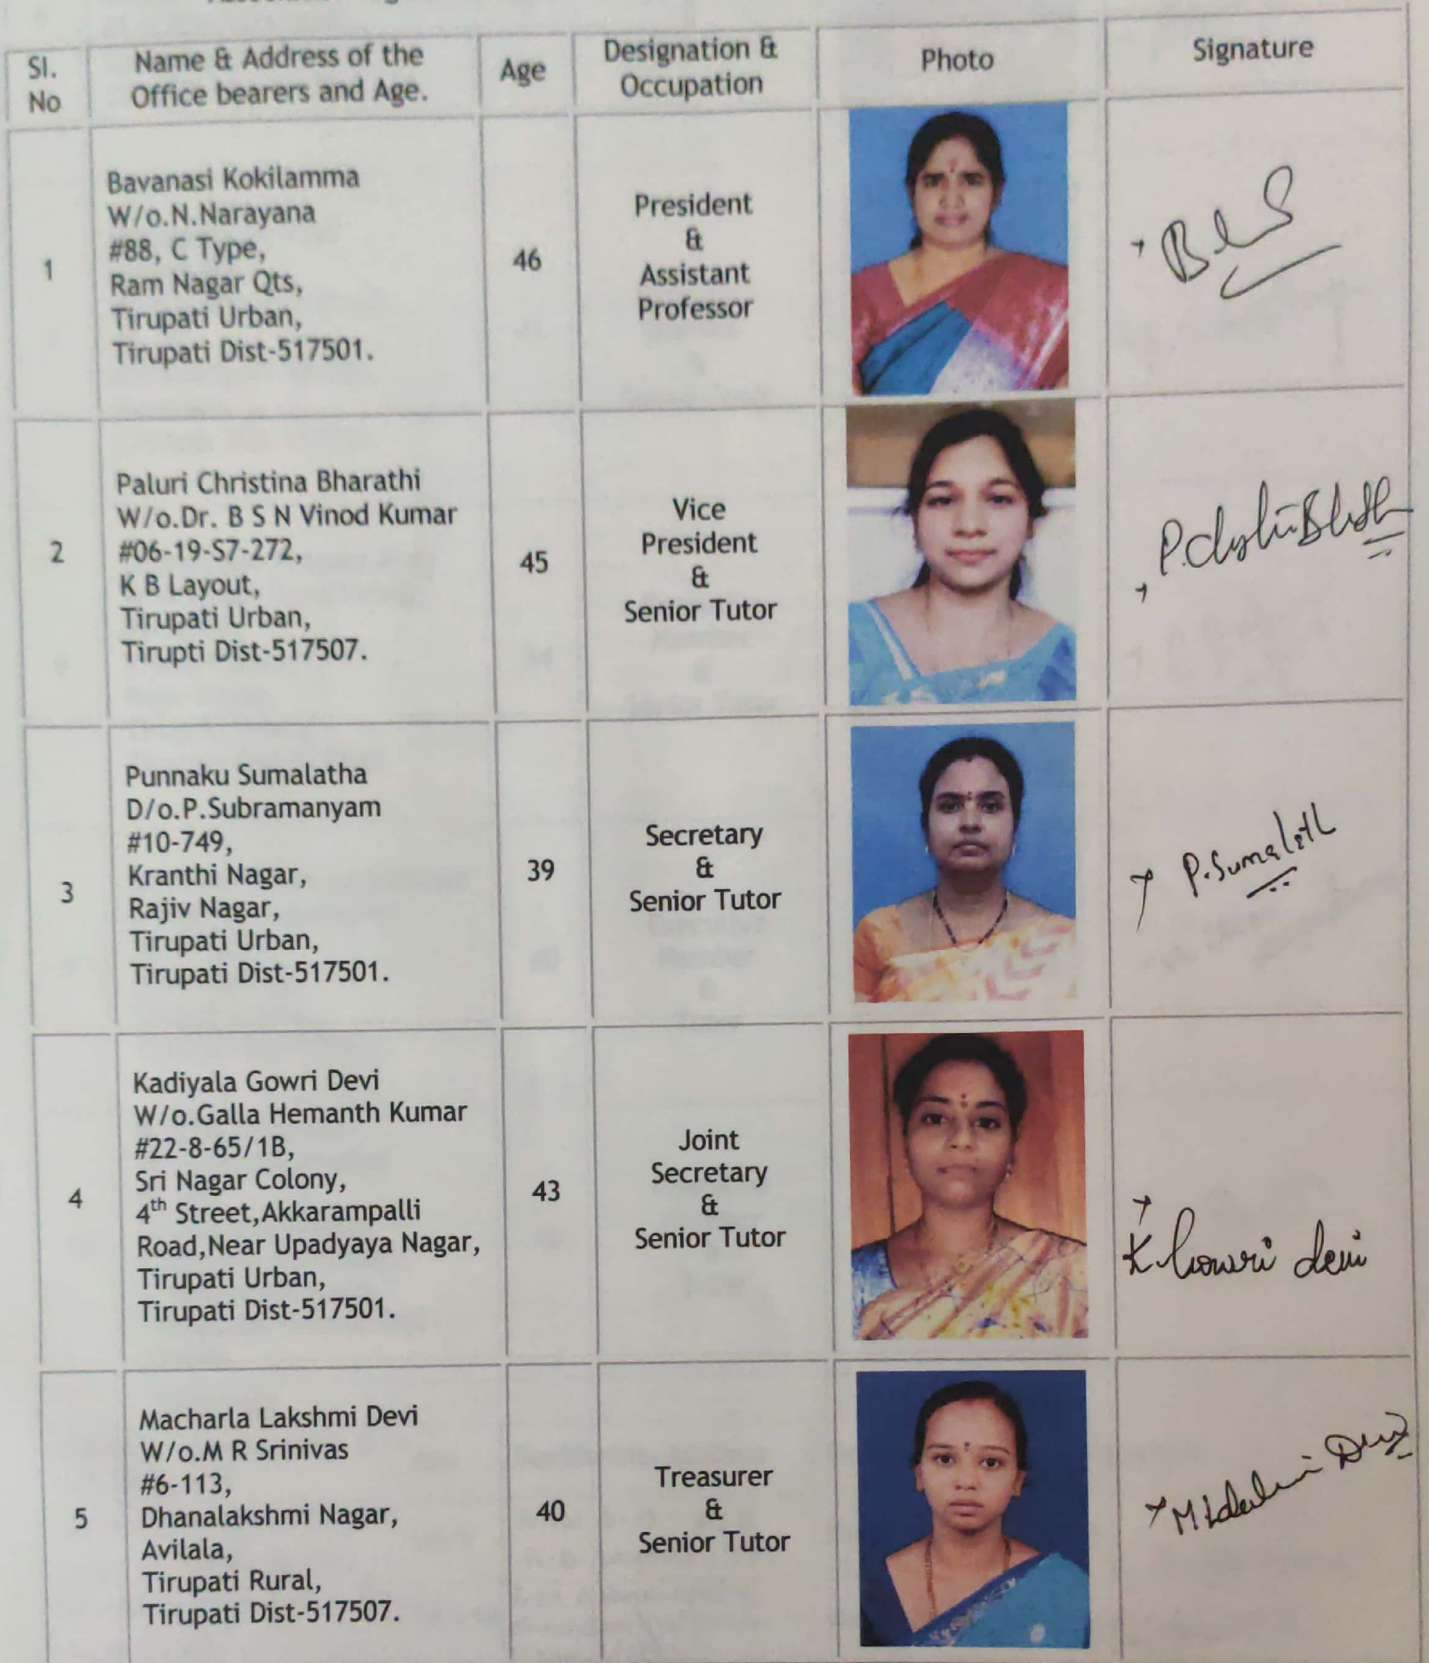 Sl.
No
Name & Address of the
Office bearers and Age.
Age
Designation &
Occupation
Photo
Signature
1
Bavanasi Kokilamma
W/o.N.Narayana
#88, C Type,
Ram Nagar Qts,
Tirupati Urban,
Tirupati Dist-517501.
46
President
&
Assistant
Professor
2
Paluri Christina Bharathi
W/o.Dr. B S N Vinod Kumar
#06-19-S7-272,
K B Layout,
Tirupati Urban,
Tirupti Dist-517507.
45
Vice
President
&
Senior Tutor
3
Punnaku Sumalatha
D/o.P.Subramanyam
#10-749,
Kranthi Nagar,
Rajiv Nagar,
Tirupati Urban,
Tirupati Dist-517501.
39
Secretary
&
Senior Tutor
P.Sumalath
4
Kadiyala Gowri Devi
W/o.Galla Hemanth Kumar
#22-8-65/1B,
Sri Nagar Colony,
4th Street,Akkarampalli
Road,Near Upadyaya Nagar,
Tirupati Urban,
Tirupati Dist-517501.
43
Joint
Secretary
&
Senior Tutor
K. Gowri devi
5
Macharla Lakshmi Devi
W/o.M R Srinivas
#6-113,
Dhanalakshmi Nagar,
Avilala,
Tirupati Rural,
Tirupati Dist-517507.
40
Treasurer
&
Senior Tutor